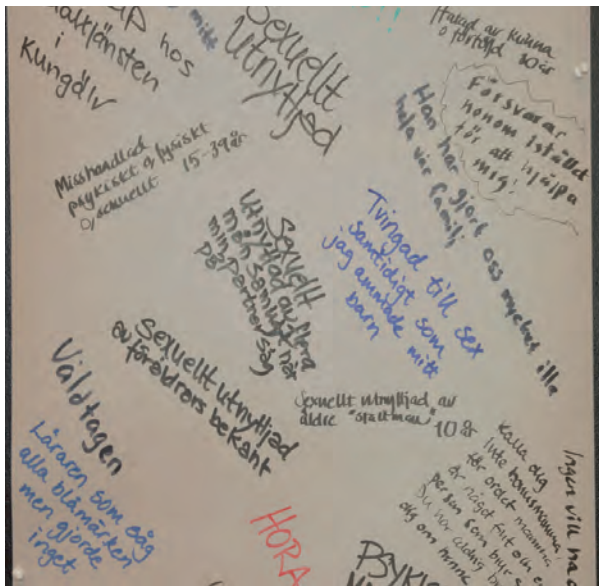 hos
i
Kungälv
mitt
Sexuellt
Utnyttjad
Hatad av kvinna
o förföljd 10 år
Försvarar
honom istället
för att hjälpa
mig!
Han har gjort oss mycket illa
hela vår familj
Misshandlad
psykiskt o fysiskt
o/sexuellt 15-39 år
Sexuellt
Utnyttjad av flera
män samtidigt när
min partner såg
på
Tvingad till sex
samtidigt som
jag ammade mitt
barn
Sexuellt utnyttjad
av föräldrars bekant
Sexuellt utnyttjad av
äldre
10 år
Våldtagen
Läraren som såg
alla blåmärken
men gjorde
inget
HORA
Kalla dig
inte bonusmamma,
för ordet mamma
är något fint och
person som
Du har aldrig
dig om
Ingen vill ha